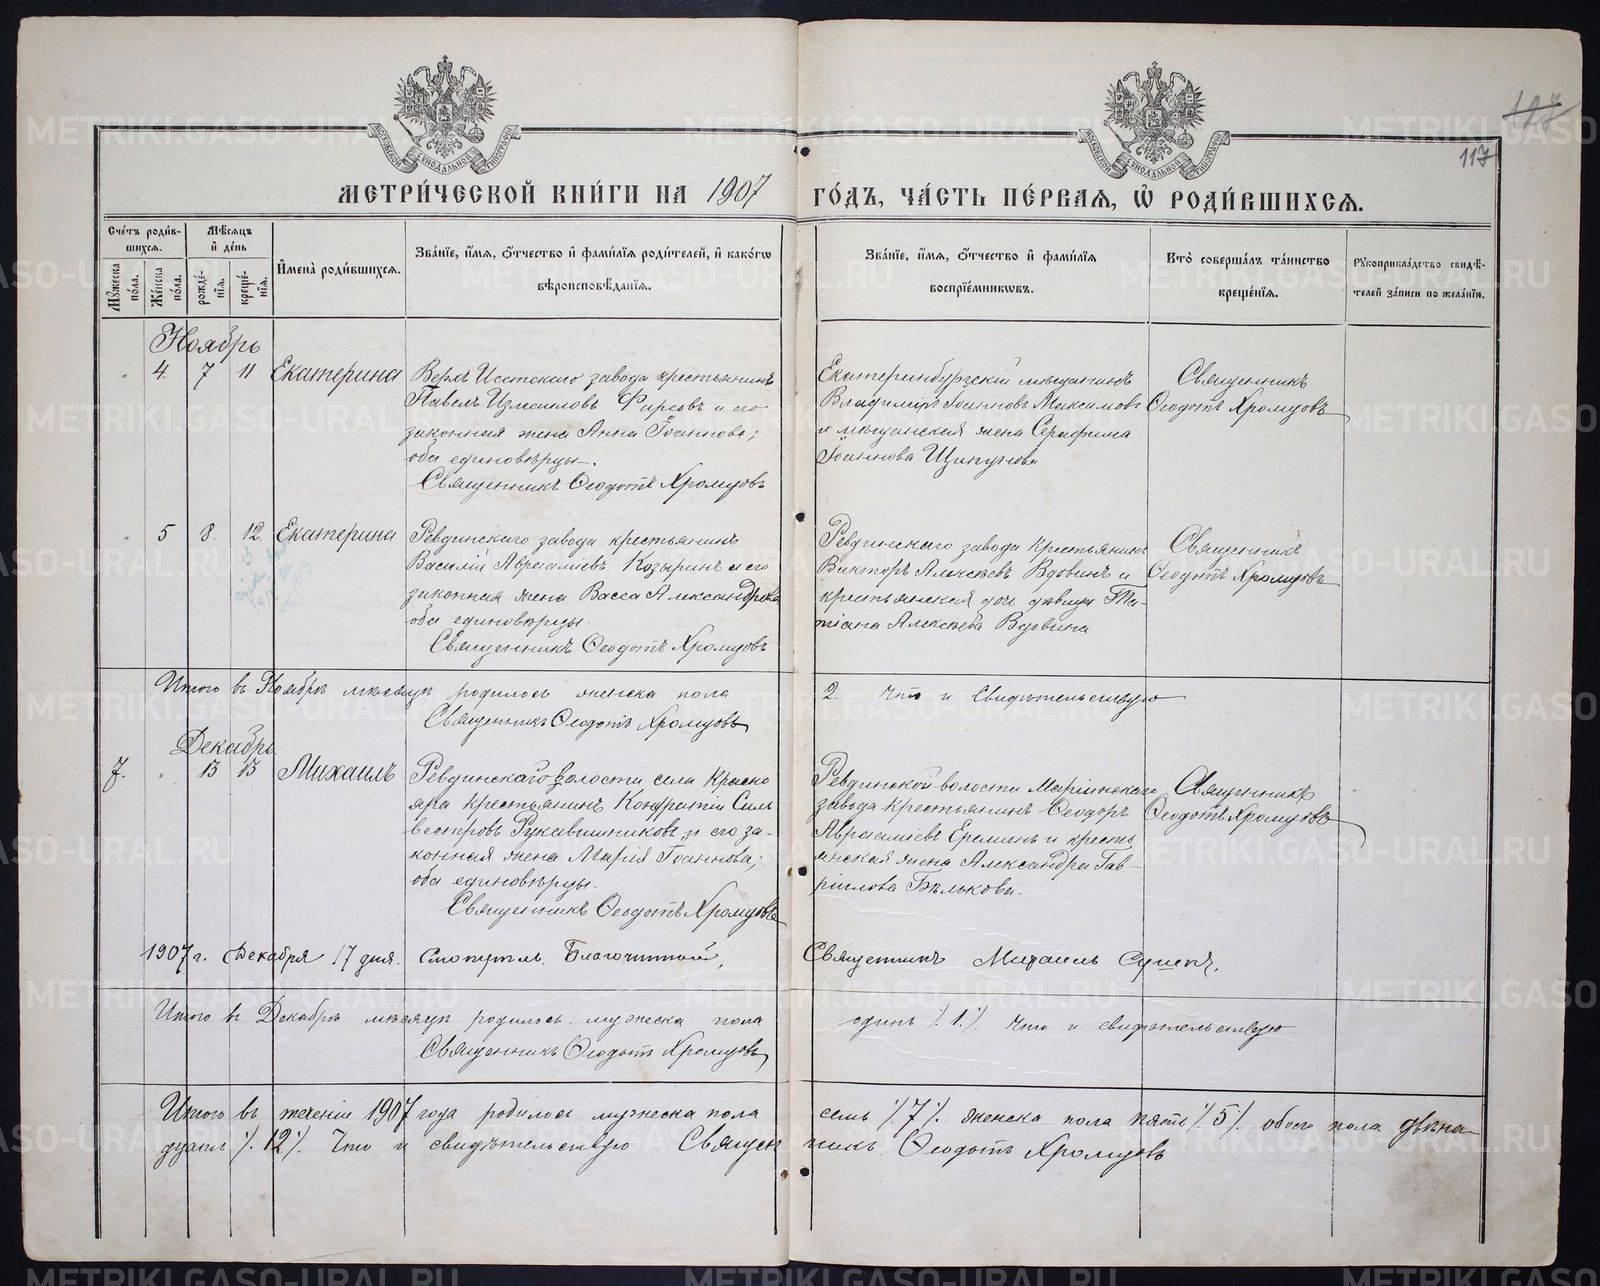 117
МЕТРИ́ЧЕСКОЙ КНИ́ГИ НА 1907 ГО́ДЪ, ЧА́СТЬ ПЕ́РВАЯ, Ѡ҆ РОДИ́ВШИХСѦ.
Сче́тъ роди́в-
шихся.
Мѣ́сяцъ
и҆ де́нь
И҆мена̀ роди́вшихся.
Зва́нїе, и҆́мя, ѻ҆́тчество и҆ фами́лїя роди́телей, и҆ како́гѡ
вѣроисповѣ́данїя.
Зва́нїе, и҆́мя, ѻ҆́тчество и҆ фами́лїя
воспрїе́мникѡвъ.
Кто̀ соверша́лъ та́инство
креще́нїя.
Рꙋкоприкла́дство свидѣ́-
телей за́писи по жела́нїю.
Мꙋ́жеска
по́ла.
Же́нска
по́ла.
рожде́-
нїя.
креще́-
нїя.
Ноябрь
" 4. 7 11 Екатерина
Верхъ Исетскаго завода крестьянинъ
Павелъ Измаиловъ Фирсовъ и его
законная жена Анна Іоаннова;
оба единовѣрцы.
Священникъ Ѳеодотъ Хромцовъ
Екатеринбургскій мѣщанинъ
Владиміръ Іоанновъ Максимовъ
и мѣщанская жена Серафима
Іоаннова Щипунова
Священникъ
Ѳеодотъ Хромцовъ
" 5 8. 12. Екатерина
Ревдинскаго завода крестьянинъ
Василій Аврааміевъ Козыринъ и его
законная жена Васса Александрова
оба единовѣрцы.
Священникъ Ѳеодотъ Хромцовъ
Ревдинскаго завода крестьянинъ
Викторъ Алексѣевъ Вдовинъ и
крестьянская дочь дѣвица Та-
тіана Алексѣева Вдовина
Священникъ
Ѳеодотъ Хромцовъ
Итого въ Ноябрѣ мѣсяцѣ родилось женска пола 2. Что и свидѣтельствую
Священникъ Ѳеодотъ Хромцовъ
Декабрь
7. " 13 13 Михаилъ
Ревдинскаго волости села Красно
яра крестьянинъ Кондратій Силь
вестровъ Рукавишниковъ и его за-
конная жена Марія Іоаннова;
оба единовѣрцы.
Священникъ Ѳеодотъ Хромцовъ
Ревдинской волости Маріинскаго
завода крестьянинъ Ѳеодоръ
Аврааміевъ Ереминъ и кресть
янская жена Александра Гав-
ріилова Бѣлькова.
Священникъ
Ѳеодотъ Хромцовъ
1907 г. Декабря 17 дня. Смотрѣлъ. Благочинный, Священникъ Михаилъ
Итого въ Декабрѣ мѣсяцѣ родилось мужеска пола одинъ ⁒ 1. ⁒ Что и свидѣтельствую
Священникъ Ѳеодотъ Хромцовъ
Итого въ теченіи 1907 года родилось мужеска пола семь ⁒ 7 ⁒ женска пола пять ⁒ 5 ⁒ обоего пола двѣна-
дцать ⁒ 12 ⁒ Что и свидѣтельствую Священникъ Ѳеодотъ Хромцовъ
METRIKI.GASO-URAL.RU